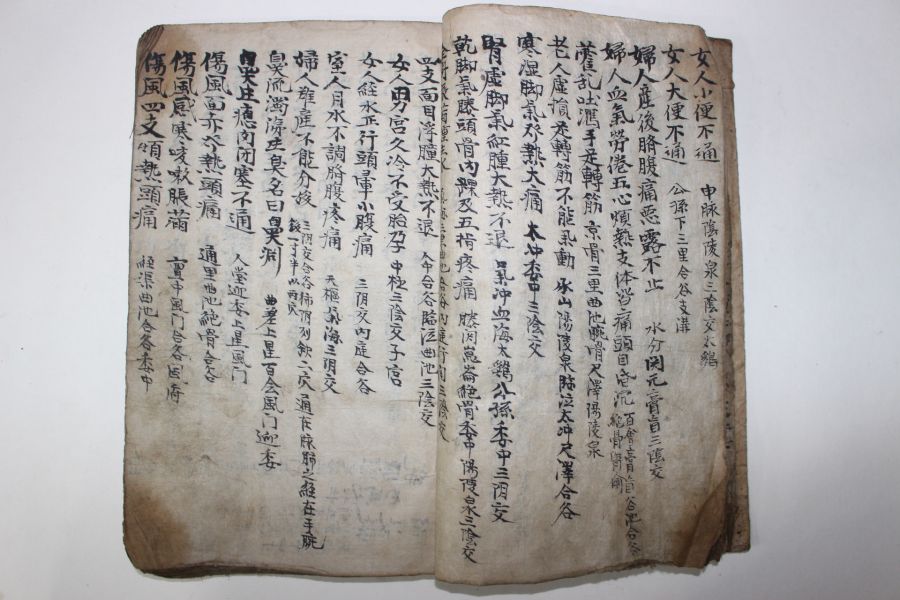 女人小便不通 申脉陰陵泉三陰交太谿
女人大便不通 公孫下三里合谷支溝
婦人産後臍腹痛惡露不止 水分関元膏肓三陰交
婦人血氣勞倦五心煩熱支体皆痛頭目昏沉 百會膏肓曲池合谷絶骨
霍乱吐瀉手足轉筋 京骨三里曲池腕骨尺澤陽陵泉
老人虚損足轉筋不能氣動 承山陽陵泉臨泣太冲尺澤合谷
寒湿脚氣發熱大痛 太冲委中三陰交
腎虚脚氣紅腫大熱不退 氣冲血海太谿公孫委中三阴交
乾脚氣膝頭骨內踝及五指疼痛 膝関崑崙絶骨委中陽陵泉三陰交
四支面目浮腫大熱不退 人中合谷臨泣曲池三陰交
女人男宮久冷不受胎孕 中極三陰交子宮
女人經水正行頭暈小腹痛 三阴交內庭合谷
室人月水不調臍腹疼痛 天樞氣海三阴交
婦人難産不能分娩 三阴交合谷
鼻流濁涕臭名曰鼻淵 曲差上星百会風门迎香
鼻生瘜肉閉塞不通 人堂迎香上星風门
傷風面赤發熱頭痛 通里曲池絶骨合谷
傷風感寒咳嗽脹滿 亶中風门合谷風府
傷風四支煩熱頭痛 經渠曲池合谷委中